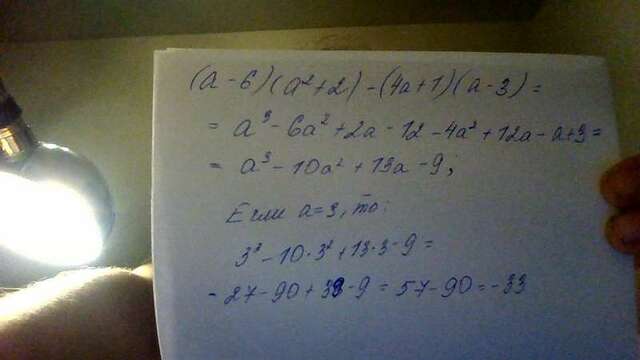 (a-6)(a²+2)-(4a+1)(a-3)=
= a³-6a²+2a-12-4a²+12a-a+3=
= a³-10a²+13a-9;
Если a=3, то:
3³-10·3²+13·3-9=
-27-90+39-9=57-90=-33